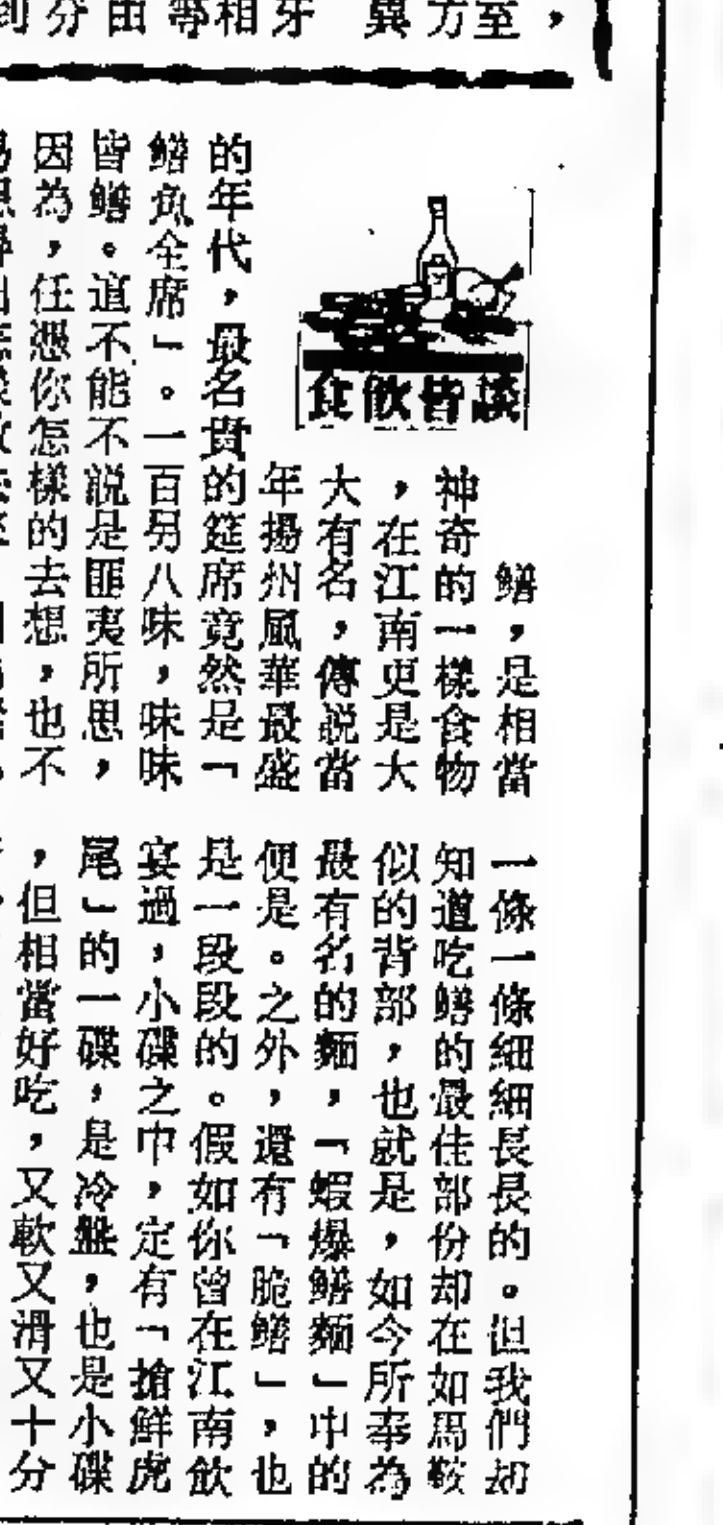 食飲皆談
鱔，是相當
神奇的一樣食物
，在江南更是大
大有名，傳説當
年揚州風華最盛
的年代，最名貴的筵席竟然是「
鱔魚全席」。一百另八味，味味
皆鱔。這不能不説是匪夷所思，
因為，任憑你怎樣的去想，也不
一條一條細細長長的。但我們却
知道吃鱔的最佳部份却在如馬鞍
似的背部，也就是，如今所奉為
最有名的麵，「蝦爆鱔麵」中的
便是。之外，還有「脆鱔」，也
是一段段的。假如你曾在江南飲
宴過，小碟之中，定有「搶鮮虎
尾」的一碟，是冷盤，也是小碟
，但相當好吃，又軟又滑又十分